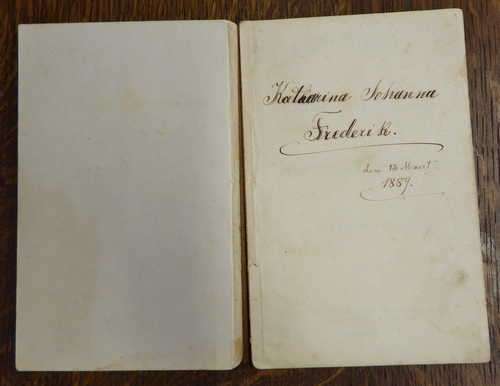 Katharina Johanna
Frederik.
den 13 Maart
1887.